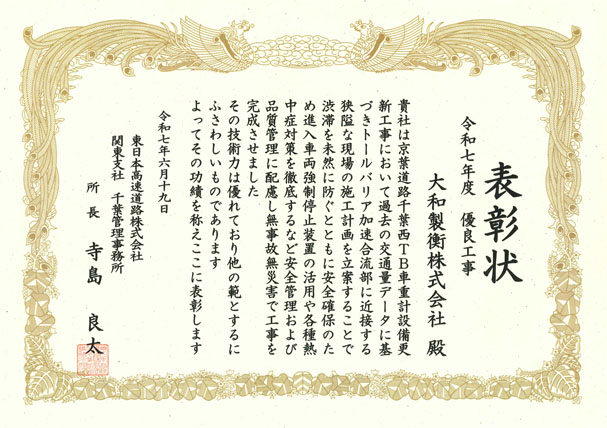 表彰状
令和七年度 優良工事
大和製衡株式会社 殿
貴社は京葉道路千葉西TB車重計設備更
新工事において過去の交通量データに基
づきトールバリア加速合流部に近接する
狭隘な現場の施工計画を立案することで
渋滞を未然に防ぐとともに安全確保のた
め進入車両強制停止装置の活用や各種熱
中症対策を徹底するなど安全管理および
品質管理に配慮し無事故無災害で工事を
完成させました
その技術力は優れており他の範とするに
ふさわしいものであります
よってその功績を称えここに表彰します
令和七年六月十九日
東日本高速道路株式会社
関東支社 千葉管理事務所
所長 寺島 良太